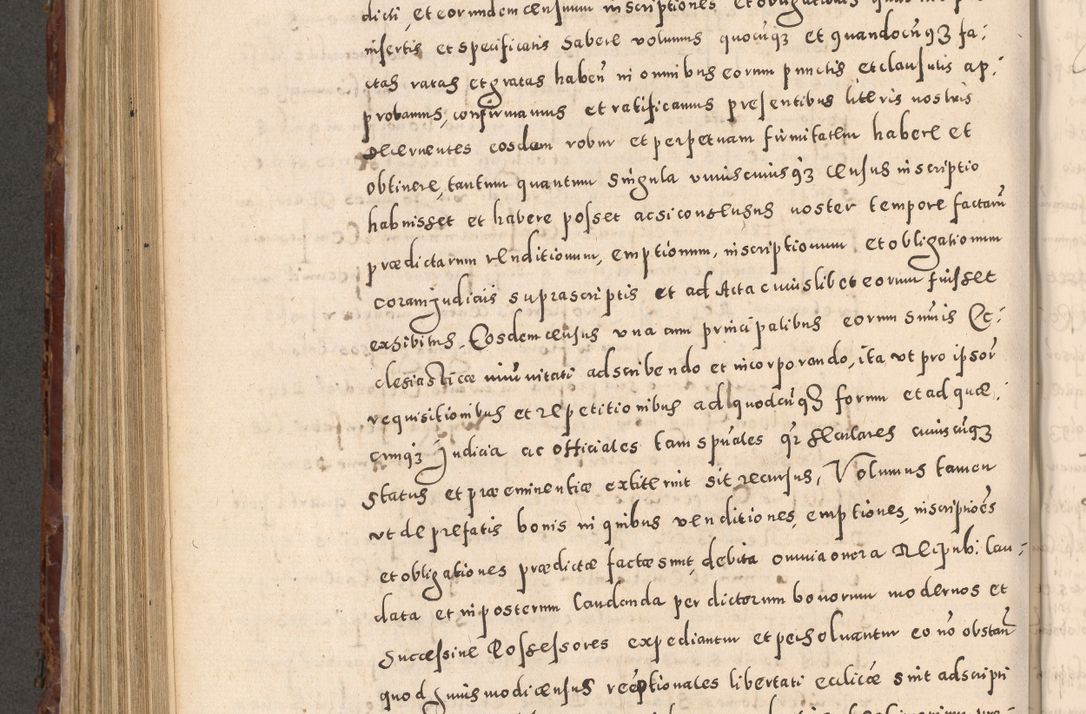 dicti, et eorundem censuum inscriptiones et obligationes
insertis et specificatis habere volumus quocūqȝ et quandocūqȝ fa:
ctas ratas et gratas haben̄ in omnibus eorum punctis et clausulis ap:
probamus, confirmamus et ratificamus presentibus literis nostris
decernentes eosdem robur et perpetuam firmitatem habere et
obtinere, tantum quantum singula uniuscuiusqȝ census inscriptio
habuisset et habere posset ac si consensus noster tempore factarū
prædictarum venditionum, emptionum, inscriptionum et obligationum
coram judiciis suprascriptis et ad Acta cuiuslibet eorum fuisset
exhibitus. Eosdem census una cum principalibus eorum summis Ec:
clesiasticæ im̄unitati adscribendo et incorporando, ita ut pro ipsorū
requisitionibus et repetitionibus ad quodcūqȝ forum et ad quæ:
cunqȝ judicia ac officiales tam sp̄uales q̄ȝ seculares cuiuscūqȝ
status et præeminentiæ extiterint sit recursus, Volumus tamen
ut de prefatis bonis in quibus venditiones, emptiones, inscriptiōēs
et obligationes prædictæ factæ sunt, debita omnia onera Reipub: lau:
data et in posterum laudanda per dictorum bonorum modernos et
successive Possessores expediantur et persoluantur eo nō obstan̄
quod huiusmodi census reēptionales libertati ecclicæ sint adscripti